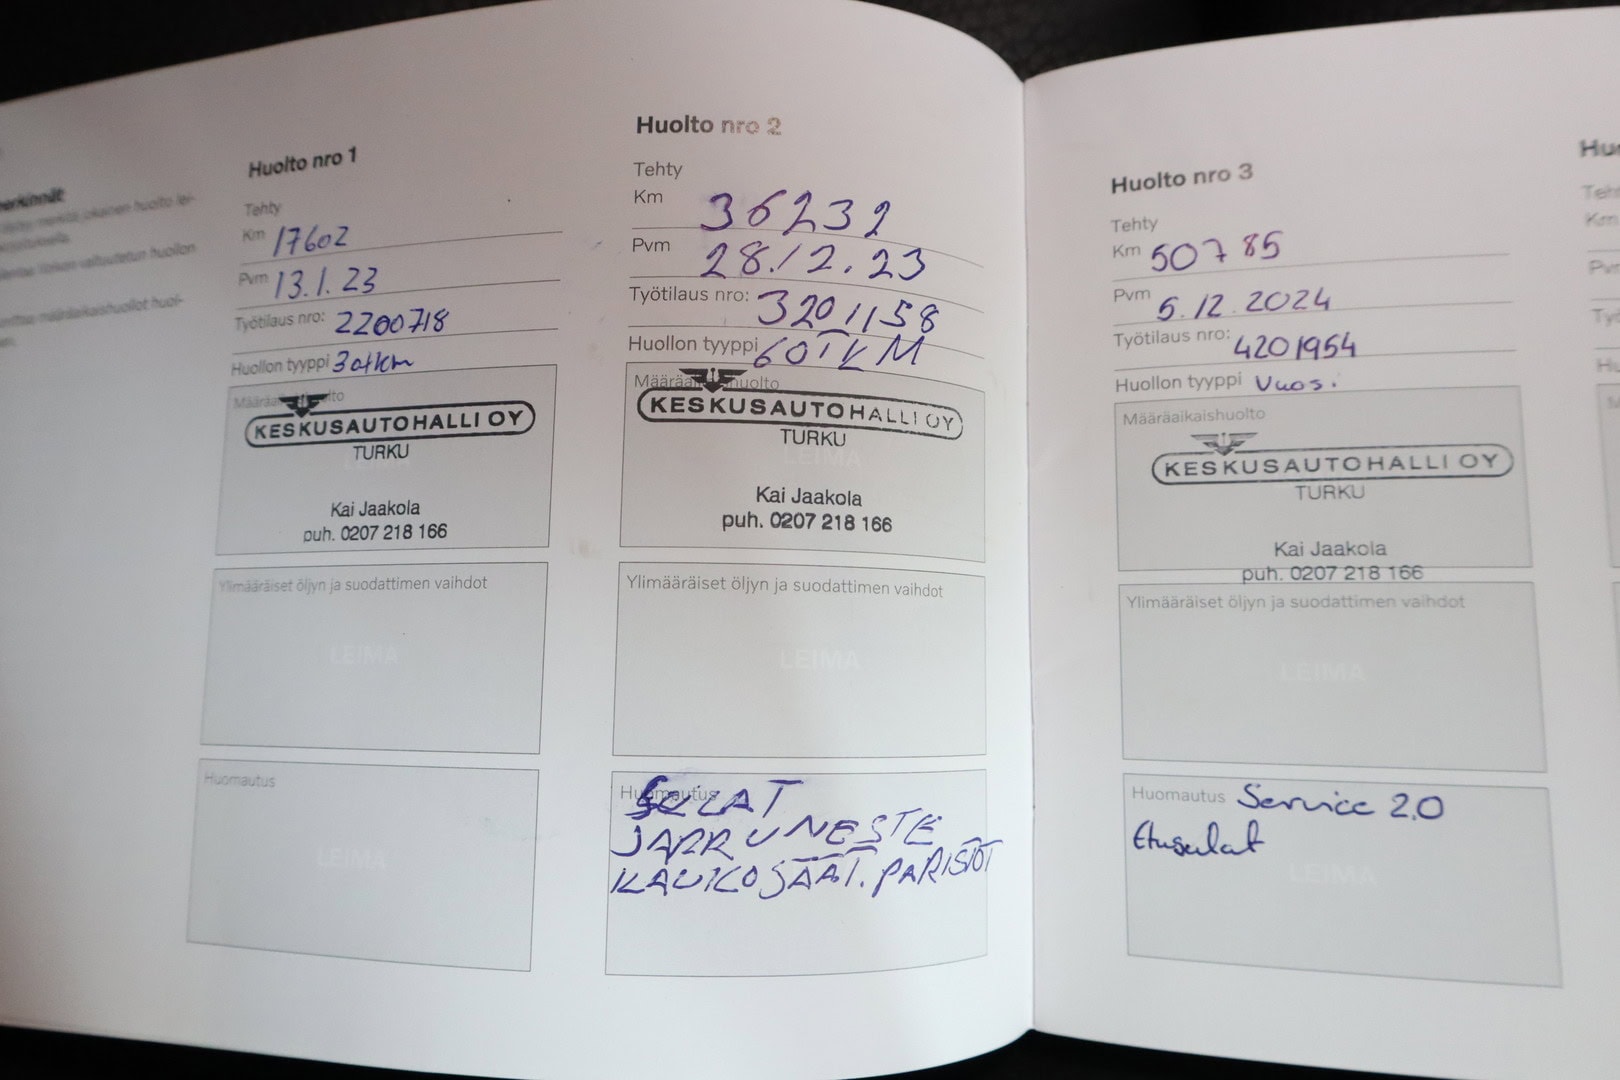 Huolto nro 1
Tehty
Km 17602
Pvm 13.1.23
Työtilaus nro: 2200718
Huollon tyyppi 30tkm
Määräaikaishuolto
KESKUSAUTOHALLI OY
TURKU
LEIMA
Kai Jaakola
puh. 0207 218 166
Ylimääräiset öljyn ja suodattimen vaihdot
LEIMA
Huomautus
LEIMA
Huolto nro 2
Tehty
Km 36232
Pvm 28.12.23
Työtilaus nro: 3201158
Huollon tyyppi 60TKM
Määräaikaishuolto
KESKUSAUTOHALLI OY
TURKU
LEIMA
Kai Jaakola
puh. 0207 218 166
Ylimääräiset öljyn ja suodattimen vaihdot
LEIMA
Huomautus SULAT
JARRUNESTE
KAUKOSÄÄT. PARISTOT
Huolto nro 3
Tehty
Km 50785
Pvm 5.12.2024
Työtilaus nro: 4201954
Huollon tyyppi Vuos.
Määräaikaishuolto
KESKUSAUTOHALLI OY
TURKU
Kai Jaakola
puh. 0207 218 166
Ylimääräiset öljyn ja suodattimen vaihdot
LEIMA
Huomautus Service 2.0
Etusulat
LEIMA